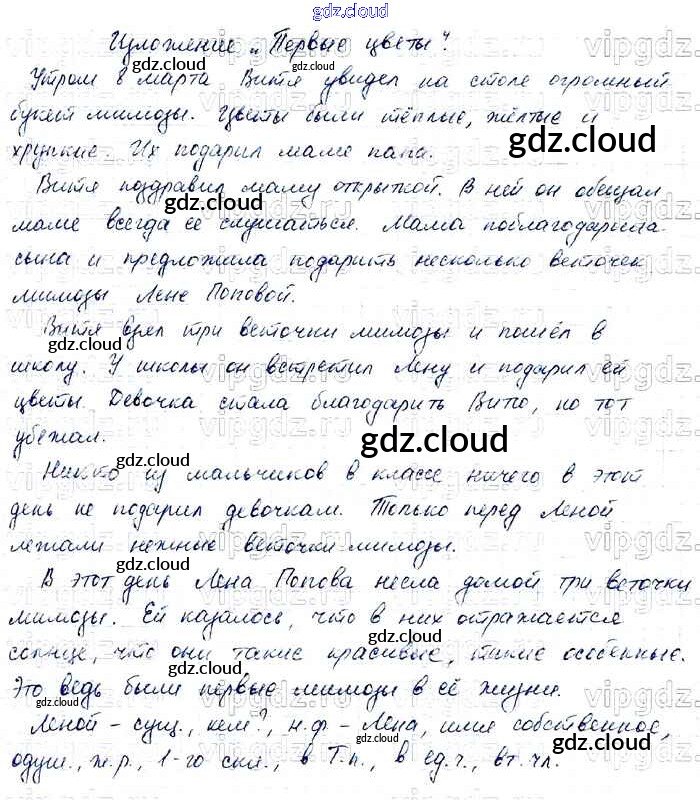 gdz.cloud
Изложение „Первые цветы".
Утром 8 марта Витя увидел на столе огромный
букет мимозы. Цветы были тёплые, жёлтые и
хрупкие. Их подарил маме папа.
Витя поздравил маму открыткой. В ней он обещал
маме всегда её слушаться. Мама поблагодарила
сына и предложила подарить несколько веточек
мимозы Лене Поповой.
Витя взял три веточки мимозы и пошёл в
школу. У школы он встретил Лену и подарил ей
цветы. Девочка стала благодарить Витю, но тот
убежал.
Никто из мальчиков в классе ничего в этот
день не подарил девочкам. Только перед Леной
лежали нежные веточки мимозы.
В этот день Лена Попова несла домой три веточки
мимозы. Ей казалось, что в них отражается
солнце, что они такие красивые, такие особенные.
Это ведь были первые мимозы в её жизни.
Леной – сущ., кем?, н.ф. – Лена, имя собственное,
одуш., ж.р., 1-го скл., в Т.п., в ед.ч., вт. чл.